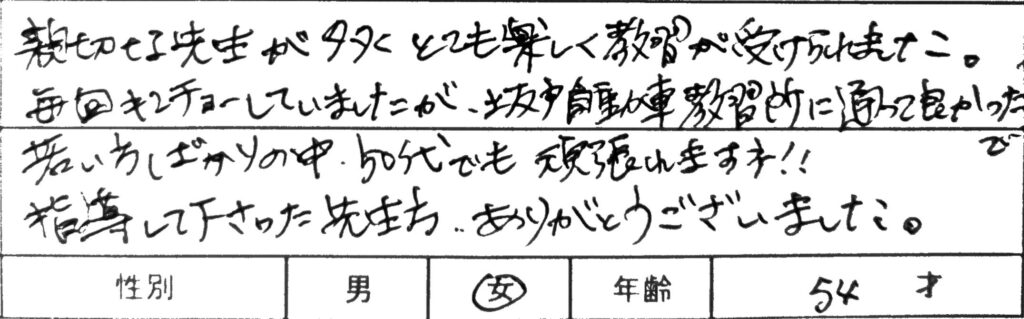 親切な先生が多くとても楽しく教習が受けられました。
毎回キンチョーしていましたが、坂戸自動車教習所に通って良かった
です
若い方ばかりの中、50代でも頑張れますネ!!
指導して下さった先生方、ありがとうございました。
性別 男 女 年齢 54 才